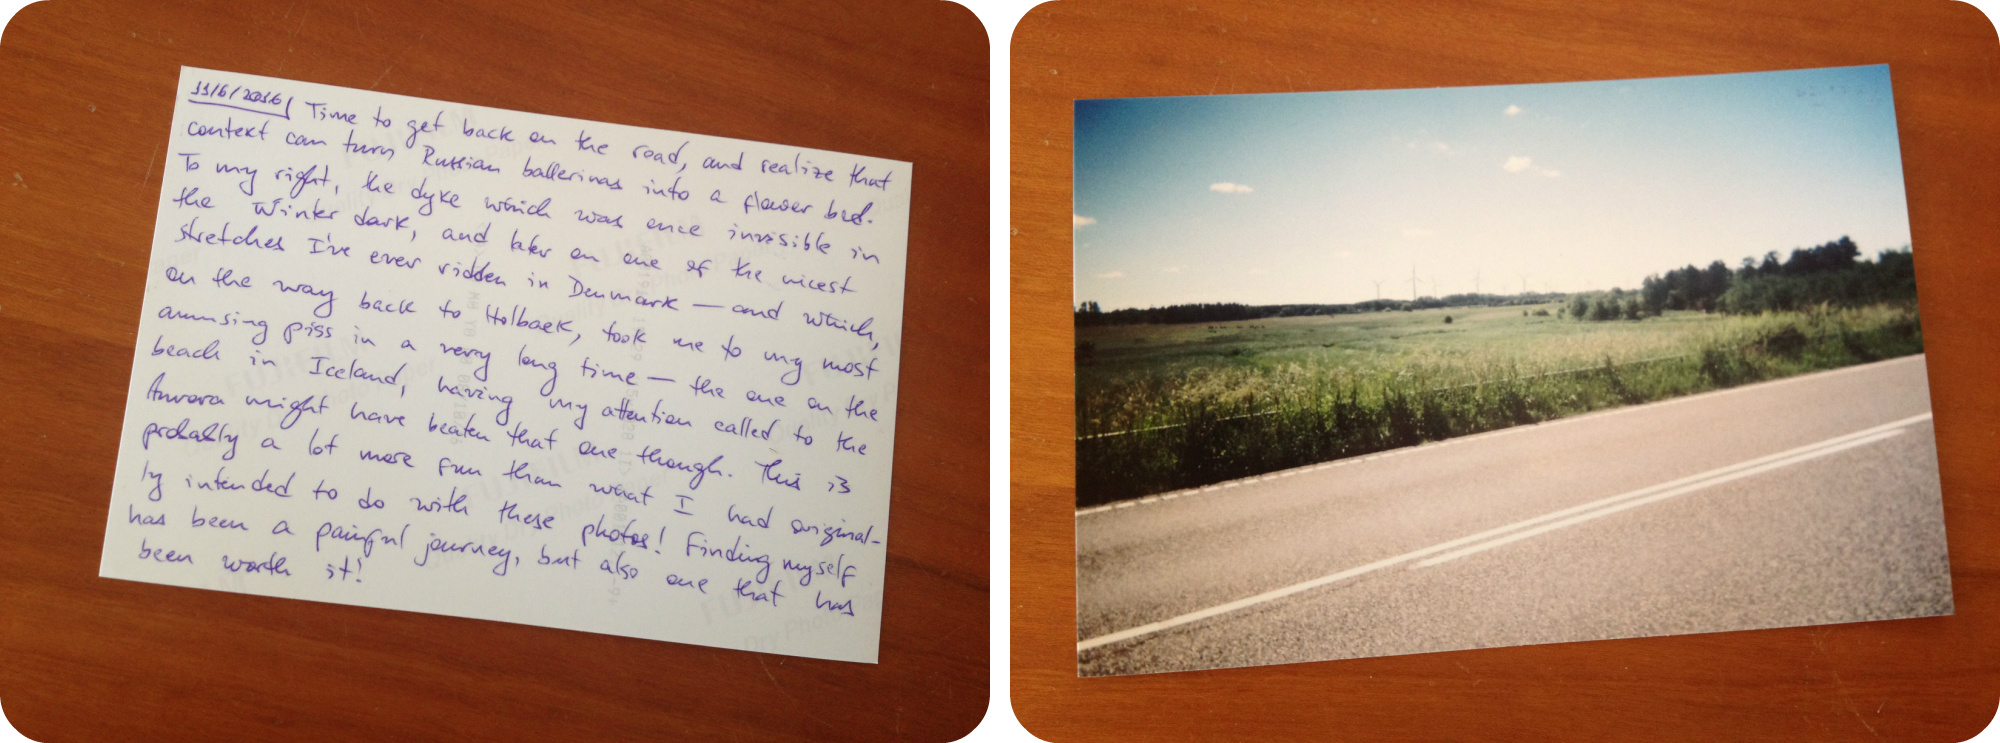 11/6/2016/ Time to get back on the road, and realize that
context can turn Russian ballerinas into a flower bed.
To my right, the dyke which was once invisible in
the Winter dark, and later on one of the nicest
stretches I've ever ridden in Denmark — and which,
on the way back to Holbaek, took me to my most
amusing piss in a very long time — the one on the
beach in Iceland, having my attention called to the
Aurora might have beaten that one though. This is
probably a lot more fun than what I had original-
ly intended to do with these photos! Finding myself
has been a painful journey, but also one that has
been worth it!